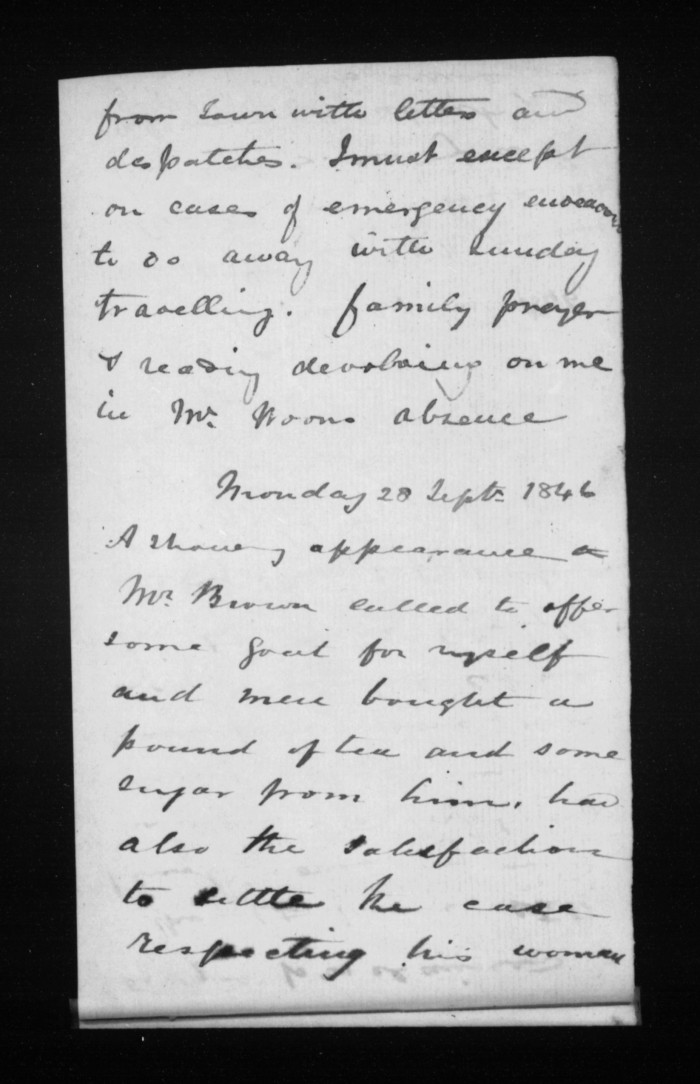 from Town with letters and
despatches. I must except
on cases of emergency endeavour
to do away with Sunday
travelling. family prayer
& reading devolving on me
in Mr. Noons absence
Monday 28 Septr. 1846
A showery appearance a
Mr. Brown called to offer
some goat for myself
and men bought a
pound of tea and some
sugar from him, had
also the satisfaction
to settle the case
respecting his woman